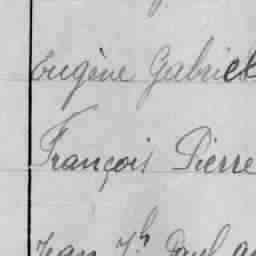 Eugène Gabriel
François Pierre
Jean Jh Paul